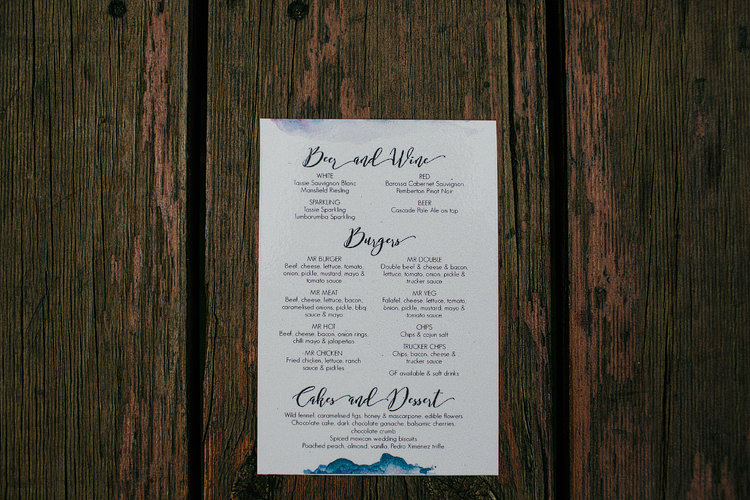 Beer and Wine
WHITE
Tassie Sauvignon Blanc
Mansfield Riesling
SPARKLING
Tassie Sparkling
Tumbarumba Sparkling
RED
Barossa Cabernet Sauvignon
Pemberton Pinot Noir
BEER
Cascade Pale Ale on tap
Burgers
MR BURGER
Beef, cheese, lettuce, tomato,
onion, pickle, mustard, mayo &
tomato sauce
MR MEAT
Beef, cheese, lettuce, bacon,
caramelised onions, pickle, bbq
sauce & mayo
MR HOT
Beef, cheese, bacon, onion rings,
chilli mayo & jalapeños
MR CHICKEN
Fried chicken, lettuce, ranch
sauce & pickles
MR DOUBLE
Double beef & cheese & bacon,
lettuce, tomato, onion, pickle &
trucker sauce
MR VEG
Falafel, cheese, lettuce, tomato,
onion, pickle, mustard, mayo &
tomato sauce
CHIPS
Chips & cajun salt
TRUCKER CHIPS
Chips, bacon, cheese &
trucker sauce
GF available & soft drinks
Cakes and Dessert
Wild fennel, caramelised figs, honey & mascarpone, edible flowers
Chocolate cake, dark chocolate ganache, balsamic cherries,
chocolate crumb
Spiced mexican wedding biscuits
Poached peach, almond, vanilla, Pedro Ximenez trifle